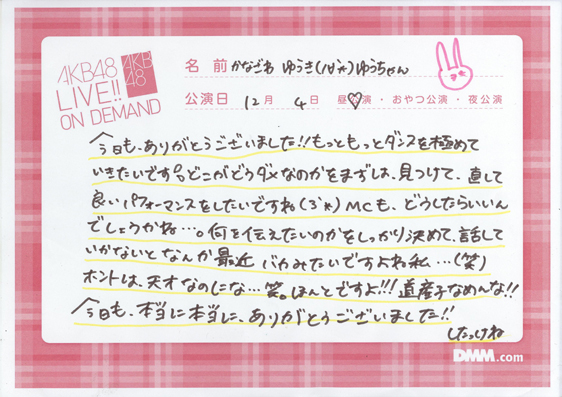 AKB48
LIVE!!
ON DEMAND
AKB
48
名 前 かなざわ ゆうき(ゆうちゃん
公演日 12月 4日 昼公演・おやつ公演・夜公演
今日も、ありがとうございました!!もっともっとダンスを極めて
いきたいです。どこがどうダメなのかをまずは、見つけて、直して
良いパフォーマンスをしたいですね(3*) MCも、どうしたらいいん
でしょうかね…。何を伝えたいのかをしっかり決めて、話して
いかないとなんか最近 バカみたいですよね私…(笑)
ホントは、天才なのにな…笑。ほんとですよ!!!道産子なめんな!!
今日も、本当に本当に、ありがとうございました!!
したっけね
DMM.com